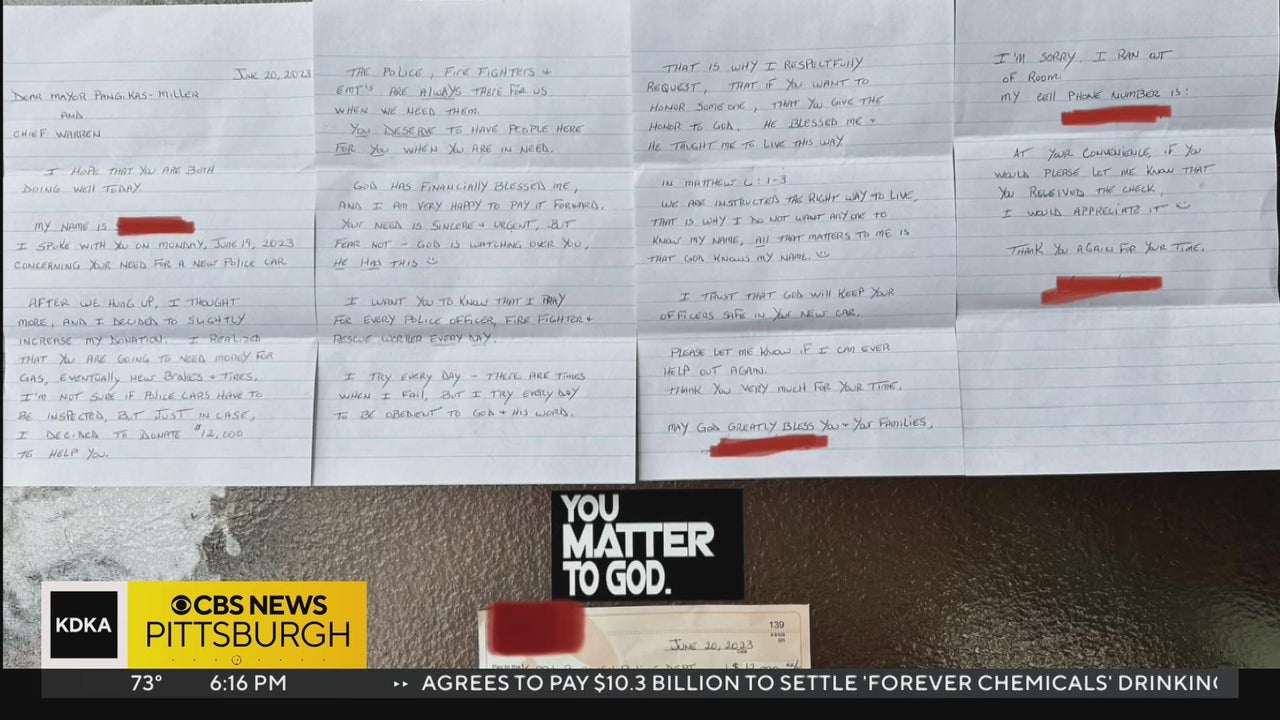 June 20, 2023
DEAR MAYOR PANGIKAS-MILLER
AND
CHIEF WARREN
I HOPE THAT YOU ARE BOTH
DOING WELL TODAY.
MY NAME IS
I SPOKE WITH YOU ON MONDAY, JUNE 19, 2023
CONCERNING YOUR NEED FOR A NEW POLICE CAR
AFTER WE HUNG UP, I THOUGHT
MORE, AND I DECIDED TO SLIGHTLY
INCREASE MY DONATION. I REALIZED
THAT YOU ARE GOING TO NEED MONEY FOR
GAS, EVENTUALLY NEW BRAKES + TIRES.
I'M NOT SURE IF POLICE CARS HAVE TO
BE INSPECTED, BUT JUST IN CASE,
I DECIDED TO DONATE $12,000
TO HELP YOU.
THE POLICE, FIRE FIGHTERS +
EMT'S ARE ALWAYS THERE FOR US
WHEN WE NEED THEM.
YOU DESERVE TO HAVE PEOPLE HERE
FOR YOU WHEN YOU ARE IN NEED.
GOD HAS FINANCIALLY BLESSED ME,
AND I AM VERY HAPPY TO PAY IT FORWARD.
YOUR NEED IS SINCERE + URGENT, BUT
FEAR NOT - GOD IS WATCHING OVER YOU,
HE HAS THIS ☺
I WANT YOU TO KNOW THAT I PRAY
FOR EVERY POLICE OFFICER, FIRE FIGHTER +
RESCUE WORKER EVERY DAY.
I TRY EVERY DAY - THERE ARE TIMES
WHEN I FAIL, BUT I TRY EVERY DAY
TO BE OBEDIENT TO GOD + HIS WORD.
THAT IS WHY I RESPECTFULLY
REQUEST, THAT IF YOU WANT TO
HONOR SOMEONE, THAT YOU GIVE THE
HONOR TO GOD. HE BLESSED ME +
HE TAUGHT ME TO LIVE THIS WAY.
IN MATTHEW 6:1-3
WE ARE INSTRUCTED THE RIGHT WAY TO LIVE,
THAT IS WHY I DO NOT WANT ANYONE TO
KNOW MY NAME, ALL THAT MATTERS TO ME IS
THAT GOD KNOWS MY NAME. ☺
I TRUST THAT GOD WILL KEEP YOUR
OFFICERS SAFE IN YOUR NEW CAR.
PLEASE LET ME KNOW IF I CAN EVER
HELP OUT AGAIN.
THANK YOU VERY MUCH FOR YOUR TIME,
MAY GOD GREATLY BLESS YOU + YOUR FAMILIES,
I'M SORRY, I RAN OUT
OF ROOM.
MY CELL PHONE NUMBER IS:
AT YOUR CONVENIENCE, IF YOU
WOULD PLEASE LET ME KNOW THAT
YOU RECEIVED THE CHECK,
I WOULD APPRECIATE IT ☺
THANK YOU AGAIN FOR YOUR TIME,
YOU
MATTER
TO GOD.
139
JUNE 20, 2023
KDKA
CBS NEWS
PITTSBURGH
73° 6:16 PM AGREES TO PAY $10.3 BILLION TO SETTLE 'FOREVER CHEMICALS' DRINKING